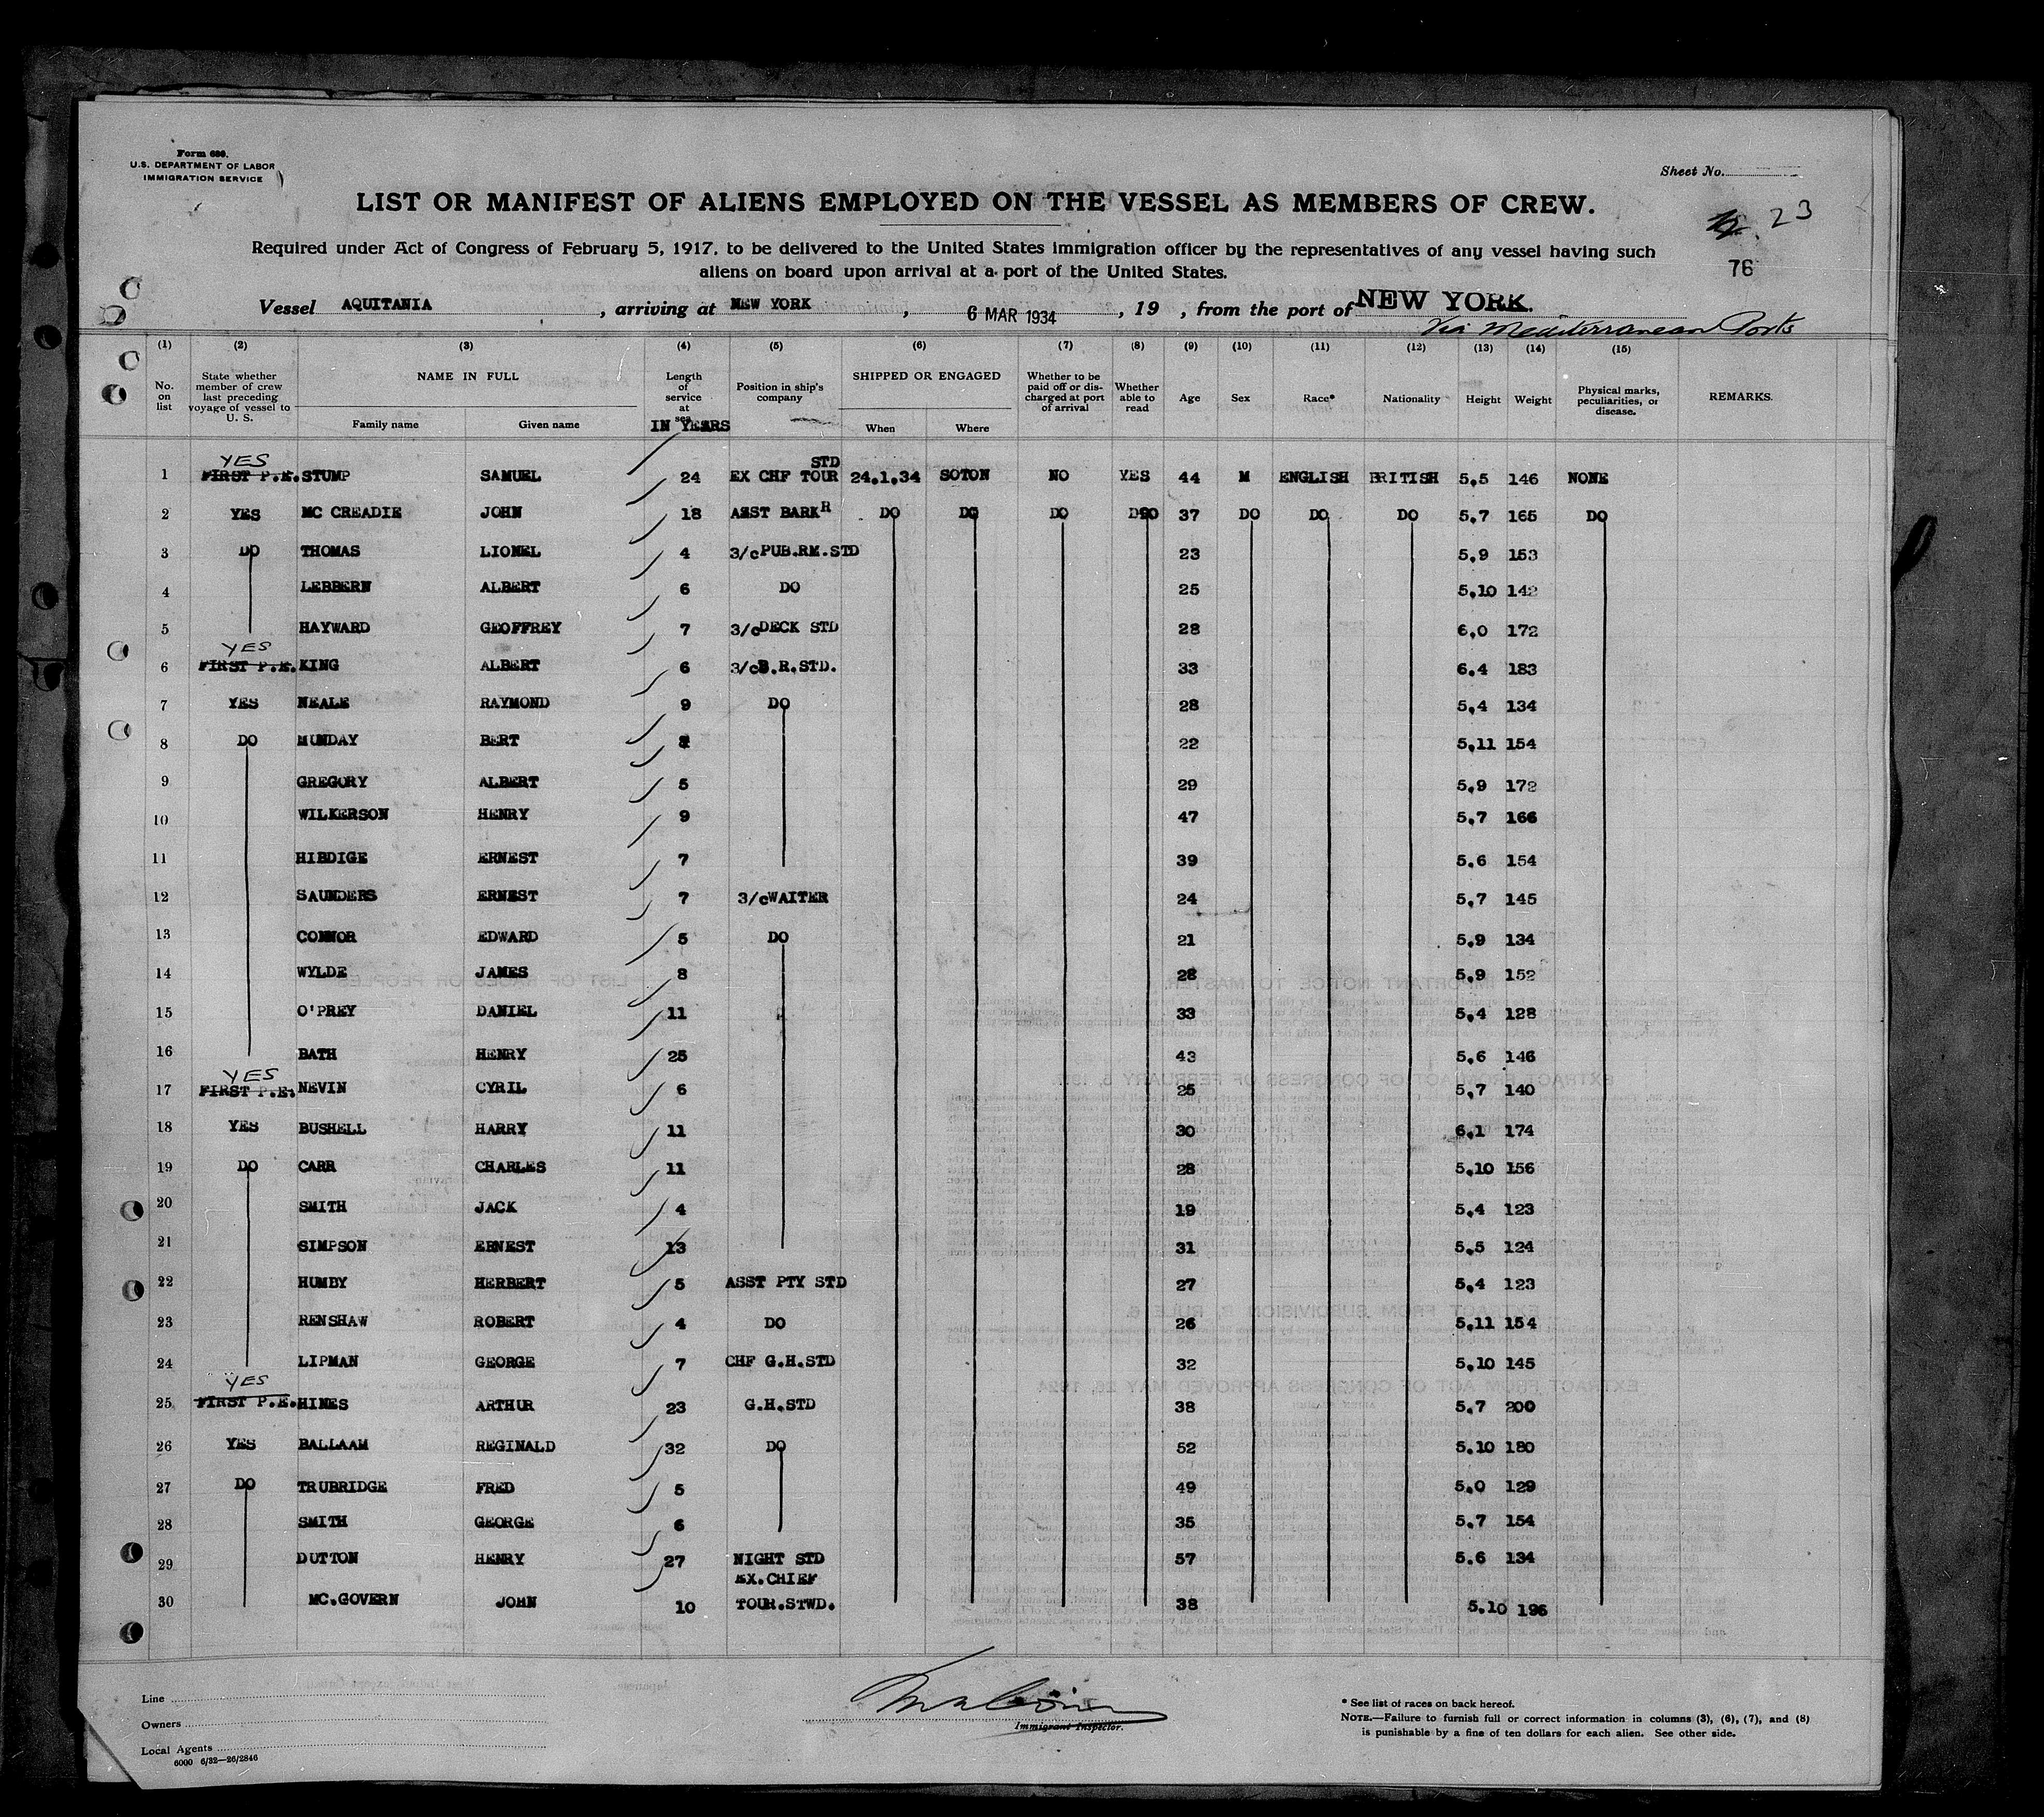 Form 689.
U.S. DEPARTMENT OF LABOR
IMMIGRATION SERVICE
Sheet No.
LIST OR MANIFEST OF ALIENS EMPLOYED ON THE VESSEL AS MEMBERS OF CREW.
23
Required under Act of Congress of February 5, 1917, to be delivered to the United States immigration officer by the representatives of any vessel having such
aliens on board upon arrival at a port of the United States.
76
Vessel AQUITANIA , arriving at NEW YORK , 6 MAR 1934 , 19 , from the port of NEW YORK.
Via Mediterranean Ports
(1) (2) (3) (4) (5) (6) (7) (8) (9) (10) (11) (12) (13) (14) (15)
No. on list State whether member of crew last preceding voyage of vessel to U. S. NAME IN FULL Family name Given name Length of service at sea IN YEARS Position in ship's company SHIPPED OR ENGAGED When Where Whether to be paid off or discharged at port of arrival Whether able to read Age Sex Race* Nationality Height Weight Physical marks, peculiarities, or disease. REMARKS.
YES STD
1 FIRST P.E. STUMP SAMUEL 24 EX CHF TOUR 24.1.34 SOTON NO YES 44 M ENGLISH BRITISH 5.5 146 NONE
2 YES MC CREADIE JOHN 18 ASST BARKR DO DO DO DO 37 DO DO DO 5.7 165 DO
3 DO THOMAS LIONEL 4 3/c PUB.RM.STD 23 5.9 153
4 LEBBERN ALBERT 6 DO 25 5.10 142
5 HAYWARD GEOFFREY 7 3/c DECK STD 28 6.0 172
YES
6 FIRST P.E. KING ALBERT 6 3/c B.R.STD. 33 6.4 183
7 YES NEALE RAYMOND 9 DO 28 5.4 134
8 DO MUNDAY BERT 22 5.11 154
9 GREGORY ALBERT 5 29 5.9 172
10 WILKERSON HENRY 9 47 5.7 166
11 HIBDIGE ERNEST 7 39 5.6 154
12 SAUNDERS ERNEST 7 3/c WAITER 24 5.7 145
13 CONNOR EDWARD 5 DO 21 5.9 134
14 WYLDE JAMES 8 28 5.9 152
15 O'PREY DANIEL 11 33 5.4 128
16 BATH HENRY 25 43 5.6 146
YES
17 FIRST P.E. NEVIN CYRIL 6 25 5.7 140
18 YES BUSHELL HARRY 11 30 6.1 174
19 DO CARR CHARLES 11 28 5.10 156
20 SMITH JACK 4 19 5.4 123
21 SIMPSON ERNEST 13 31 5.5 124
22 HUMBY HERBERT 5 ASST PTY STD 27 5.4 123
23 RENSHAW ROBERT 4 DO 26 5.11 154
24 LIPMAN GEORGE 7 CHF G.H.STD 32 5.10 145
YES
25 FIRST P.E. HINES ARTHUR 23 G.H.STD 38 5.7 200
26 YES BALLAAM REGINALD 32 DO 52 5.10 180
27 DO TRUBRIDGE FRED 5 49 5.0 129
28 SMITH GEORGE 6 35 5.7 154
29 DUTTON HENRY 27 NIGHT STD 57 5.6 134
EX.CHIEF
30 MC.GOVERN JOHN 10 TOUR.STWD. 38 5.10 196
Line
Owners
Local Agents
6000 6/32—26/2846
Immigrant Inspector.
* See list of races on back hereof.
NOTE.—Failure to furnish full or correct information in columns (3), (6), (7), and (8)
is punishable by a fine of ten dollars for each alien. See other side.